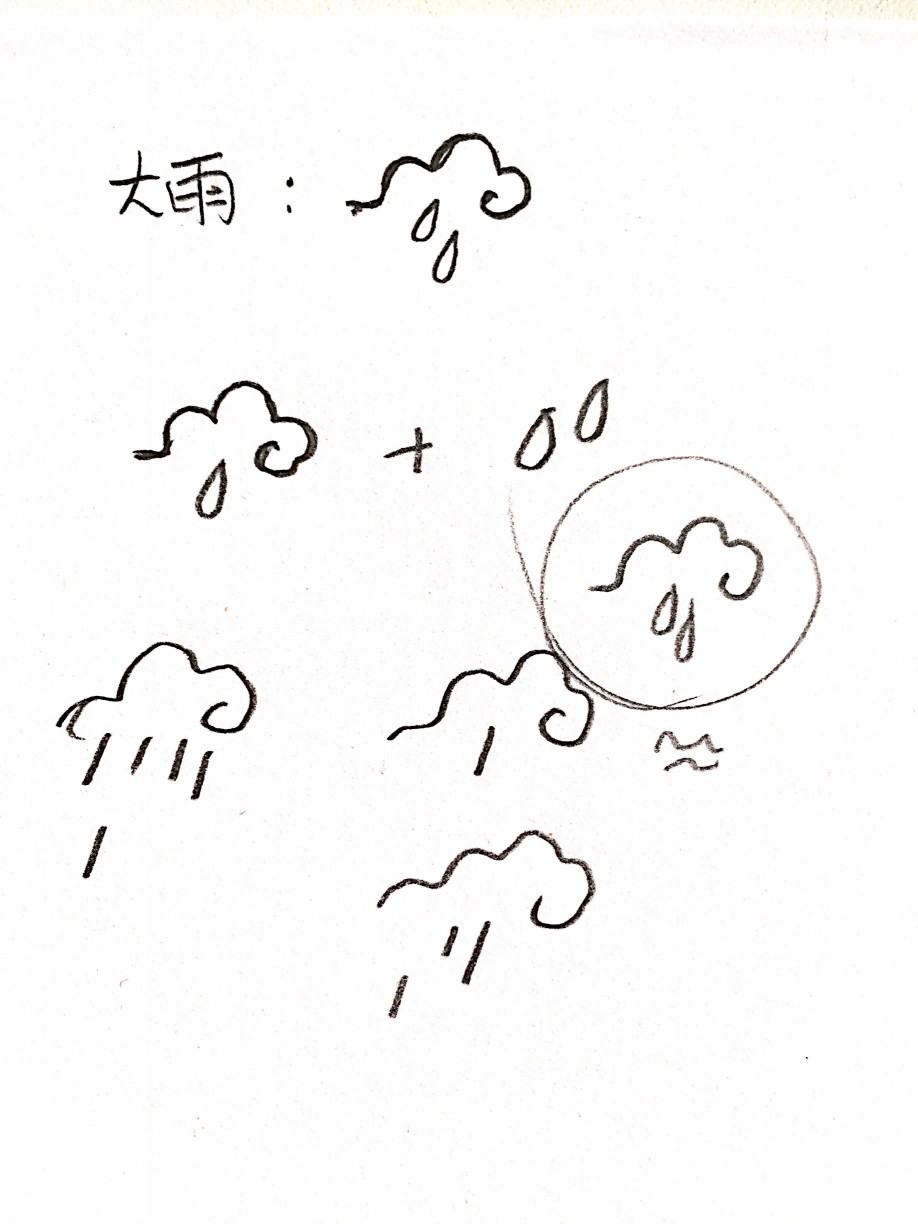 大雨：
+